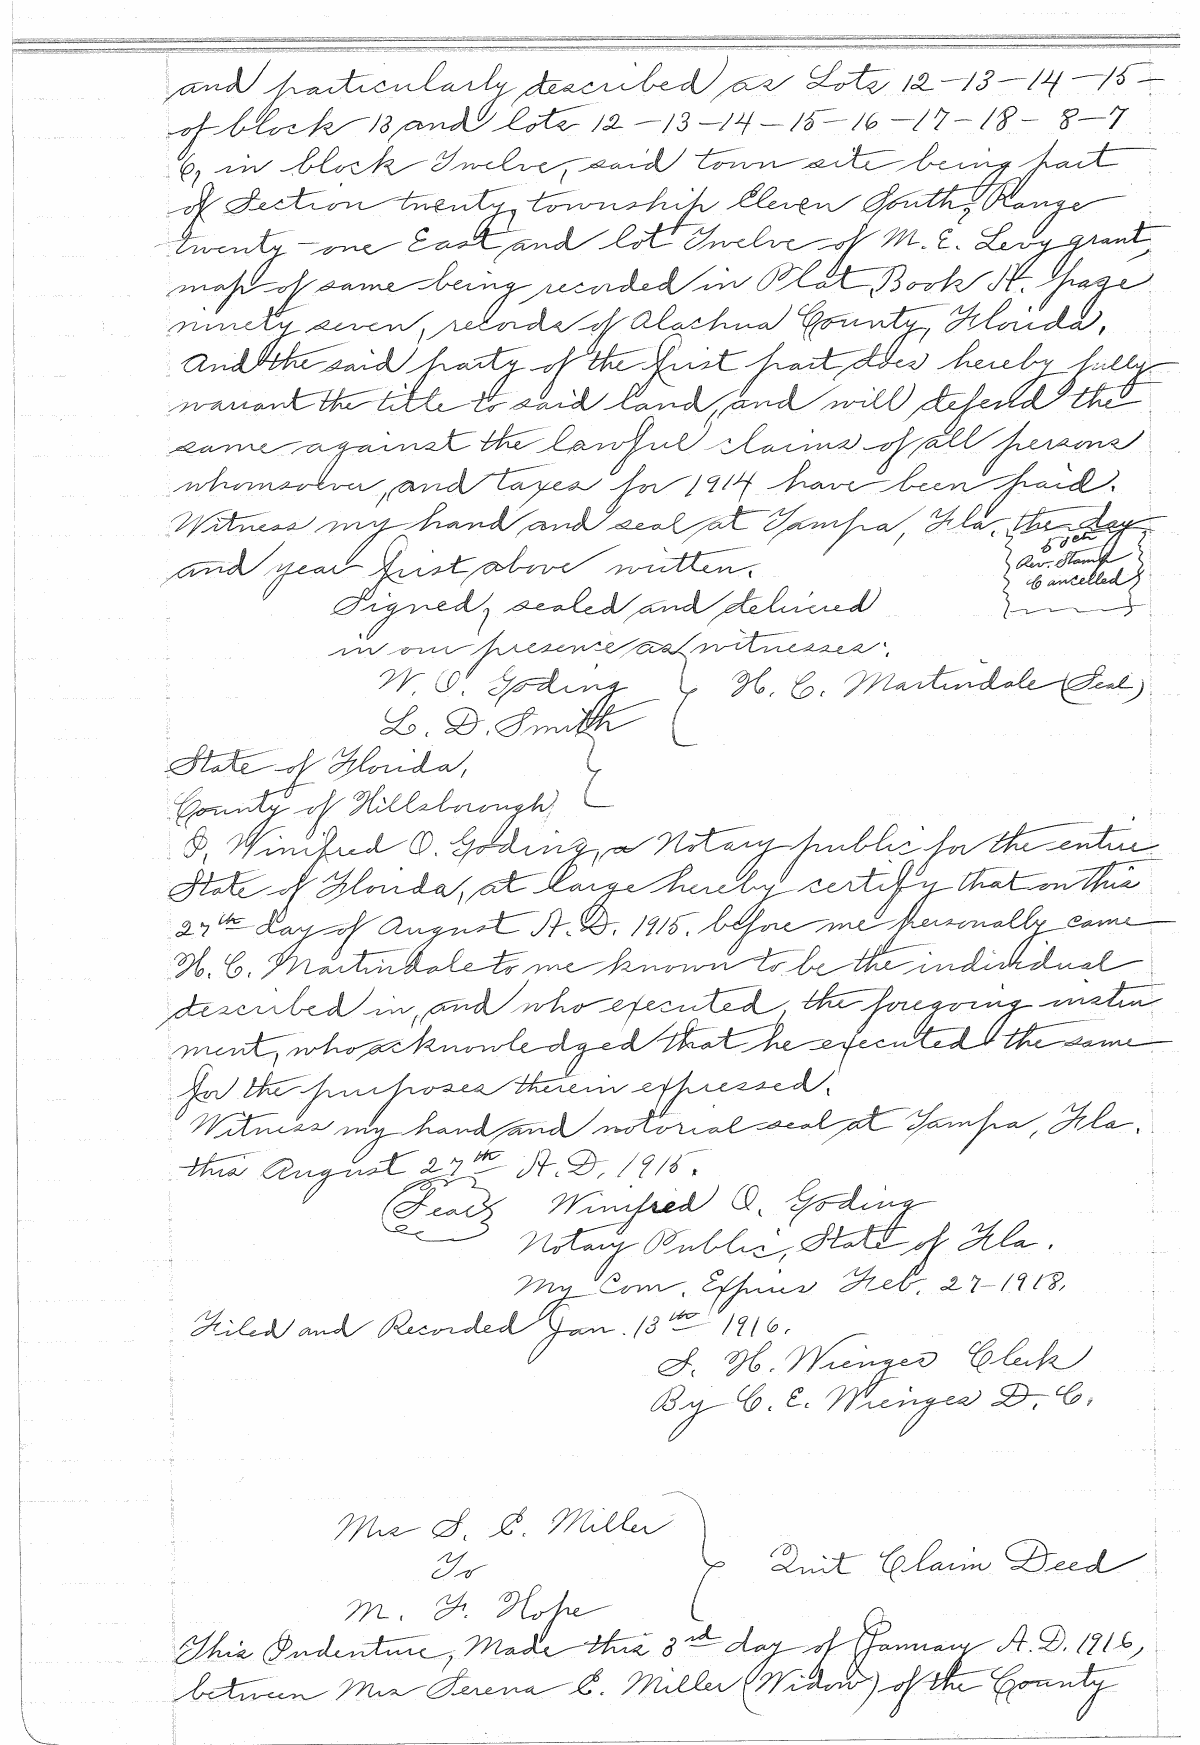 and particularly described as Lots 12-13-14-15-
of block 13, and lots 12-13-14-15-16-17-18-8-7
6, in block Twelve, said town site being part
of Section twenty, township Eleven South, Range
twenty-one East, and lot Twelve of M. E. Levy grant,
map of same being recorded in Plat Book A. page
ninety seven, records of Alachua County, Florida.
And the said party of the first part does hereby fully
warrant the title to said land, and will defend the
same against the lawful claims of all persons
whomsoever, and taxes for 1914 have been paid.
Witness my hand and seal at Tampa, Fla. the day
Rev. Stamp
Cancelled
and year first above written.
Signed, sealed and delivered
in our presence as witnesses:
W. O. Goding
H. C. Martindale (Seal)
L. D. Smith
State of Florida,
County of Hillsborough,
I, Winifred O. Goding, a Notary public for the entire
State of Florida, at large hereby certify that on this
27th day of August A. D. 1915. before me personally came
H. C. Martindale to me known to be the individual
described in, and who executed, the foregoing instru
ment, who acknowledged that he executed the same
for the purposes therein expressed.
Witness my hand and notorial seal at Tampa, Fla.
this August 27th A. D. 1915.
(Seal) Winifred O. Goding
Notary Public, State of Fla.
My Com. Expires Feb. 27-1918.
Filed and Recorded Jan. 13th 1916.
S. H. Wienges Clerk
By C. E. Wienges D. C.
Mrs S. E. Miller
To
Quit Claim Deed
M. F. Hope
This Indenture, Made this 3rd day of January A. D. 1916,
between Mrs Serena E. Miller (Widow) of the County